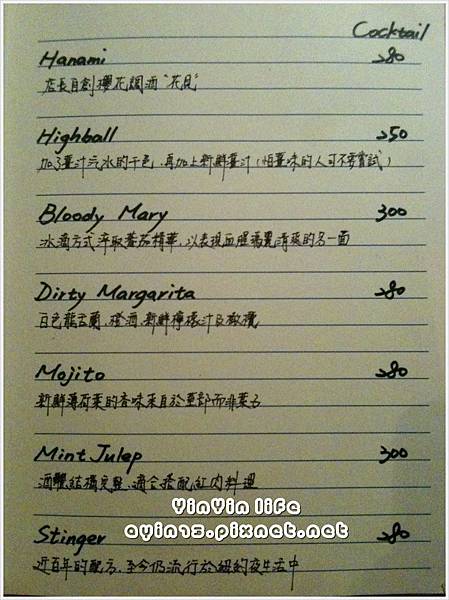 Cocktail
Hanami 280
店長自創櫻花調酒“花見”
Highball 250
加了薑汁汽水的干邑，再加上新鮮薑汁（怕薑味的人可不要嘗試）
Bloody Mary 300
冰滴方式萃取蕃茄精華，以表現血腥瑪麗清爽的另一面
Dirty Margarita 280
白色龍舌蘭、橙酒、新鮮檸檬汁及橄欖
Mojito 280
新鮮薄荷葉的香味來自於莖部而非葉子
Mint Julep 300
酒體結構完整、適合搭配紅肉料理
Stinger 280
近百年的配方，至今仍流行於紐約夜生活中
YinYin life
ayin75.pixnet.net